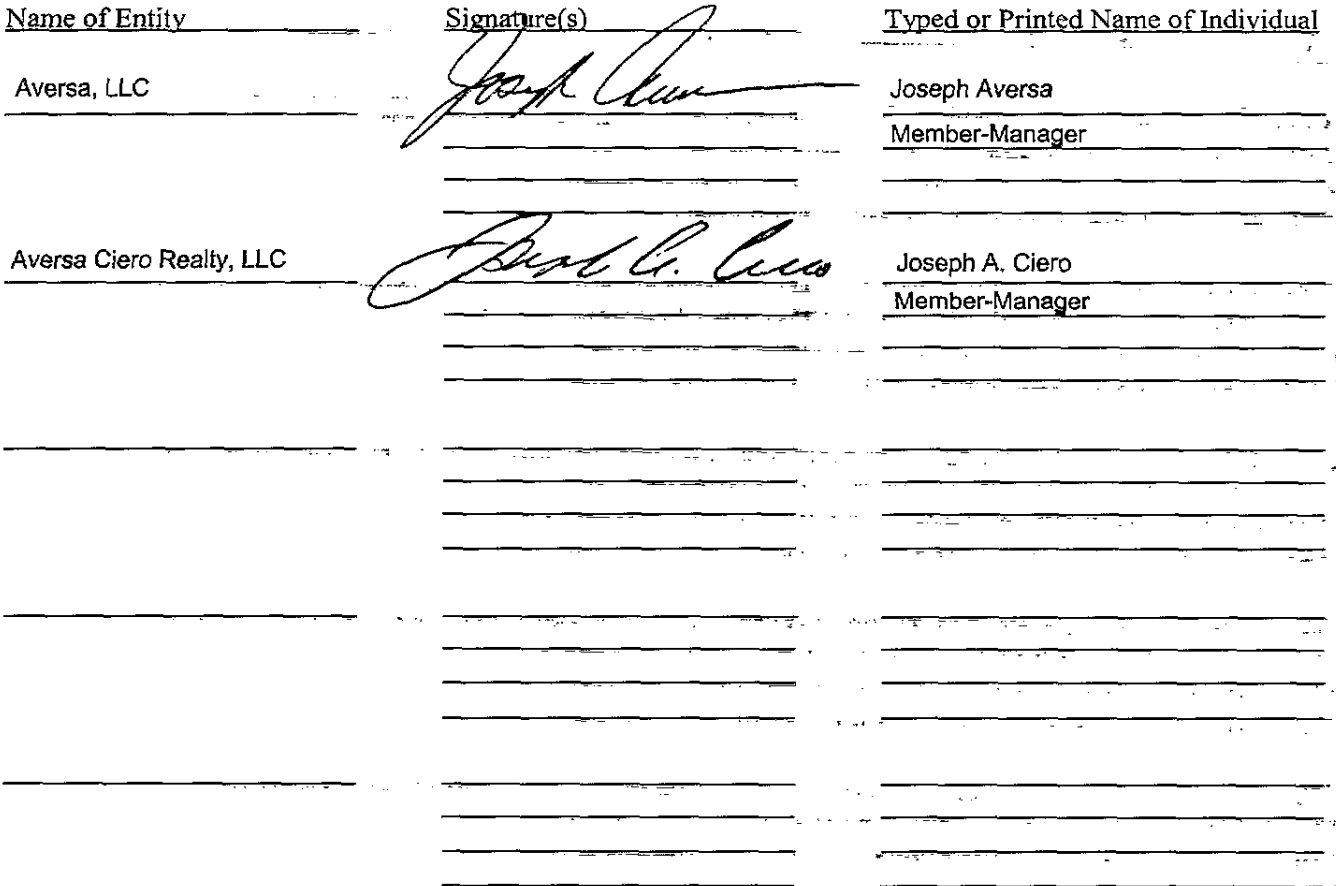 Name of Entity Signature(s) Typed or Printed Name of Individual
Aversa, LLC Joseph Aversa
Member-Manager
Aversa Ciero Realty, LLC Joseph A. Ciero Joseph A. Ciero
Member-Manager